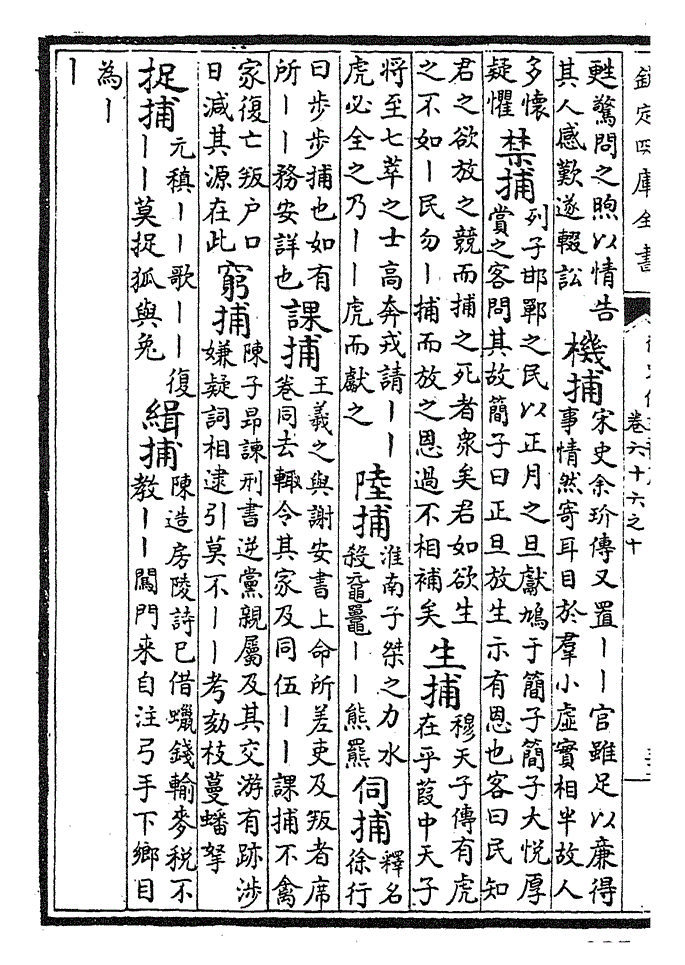 欽定四庫全書
卷六十六之十
甦驚問之煦以情告
其人感歎遂輟訟
機捕
宋史余玠傳又置丨丨官雖足以廉得
事情然寄耳目於羣小虛實相半故人
多懷
疑懼
禁捕
列子邯鄲之民以正月之旦獻鳩于簡子簡子大悅厚
賞之客問其故簡子曰正旦放生示有恩也客曰民知
君之欲放之競而捕之死者衆矣君如欲生
之不如丨民勿丨捕而放之恩過不相補矣
生捕
穆天子傳有虎
在乎葭中天子
將至七萃之士高奔戎請丨丨
虎必全之乃丨丨虎而獻之
陸捕
淮南子桀之力水
殺黿鼉丨丨熊羆
伺捕
釋名
徐行
曰步步捕也如有
所丨丨務安詳也
課捕
王羲之與謝安書上命所差吏及叛者席
卷同去輒令其家及同伍丨丨課捕不禽
家復亡叛户口
日減其源在此
窮捕
陳子昂諫刑書逆黨親屬及其交游有跡涉
嫌疑詞相逮引莫不丨丨考劾枝蔓蟠拏
捉捕
元稹丨丨歌丨丨復
丨丨莫捉狐與兔
緝捕
陳造房陵詩已借蠟錢輸麥税不
教丨丨闖門来自注弓手下鄉目
為丨
丨